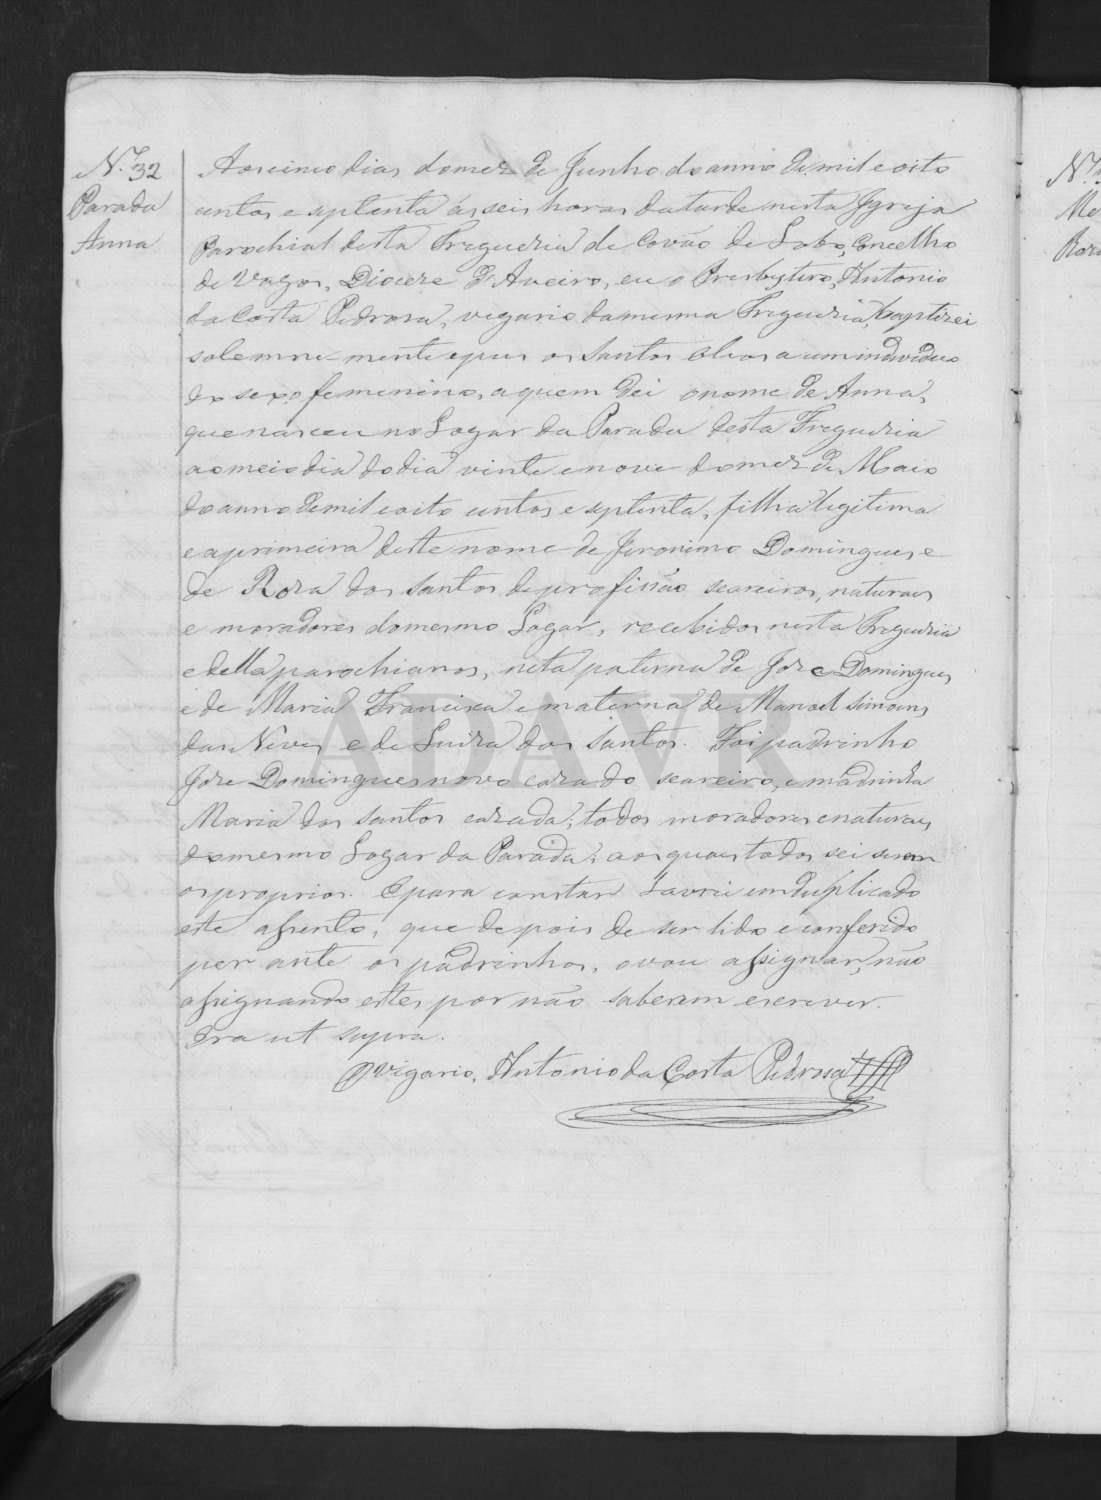 N.º 32
Parada
Anna
Aos cinco dias do mez de Junho do anno de mil e oito
centos e septenta ás seis horas da tarde nesta Igreja
Parochial desta Freguezia de Covão de Lobo, Concelho
de Vagos, Diocese d'Aveiro, eu o Presbytero, Antonio
da Costa Pedrosa, vigario da mesma Freguezia, baptizei
solemne-mente e puz os Santos Oleos a um individuo
do sexo femenino, a quem dei o nome de Anna,
que nasceu no Logar da Parada desta Freguezia
ao meio dia do dia vinte e nove do mez de Maio
do anno de mil e oito centos e septenta, filha legitima
e a primeira deste nome de Jeronimo Domingues e
de Roza dos Santos, de profissão seareiros, naturaes
e moradores do mesmo Logar, recebidos nesta Freguezia
e della parochianos, neta paterna de Joze Domingues
e de Maria Francisca e materna de Manoel Simoens
das Neves e de Luiza dos Santos. Foi padrinho
Joze Domingues novo cazado seareiro, e madrinha
Maria dos Santos cazada, todos moradores e naturaes
do mesmo Logar da Parada, aos quaes todos sei serem
os proprios. E para constar lavrei em duplicado
este assento, que depois de ser lido e conferido
per ante os padrinhos, o vou assignar, não
assignando estes por não saberem escrever.
Era ut supra.
O Vigario, Antonio da Costa Pedrosa
N.º
Me
Roza
ADAVR